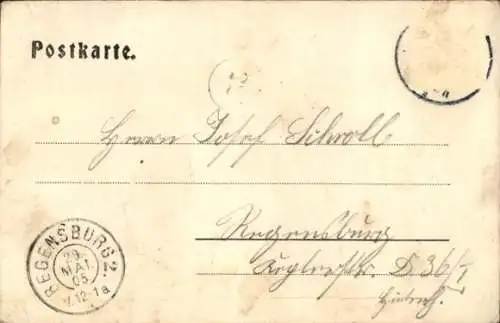 Postkarte.
Herrn Josef Schroll
Regensburg
D 36/I
REGENSBURG 2.
29
MAI
05
V.12-1a